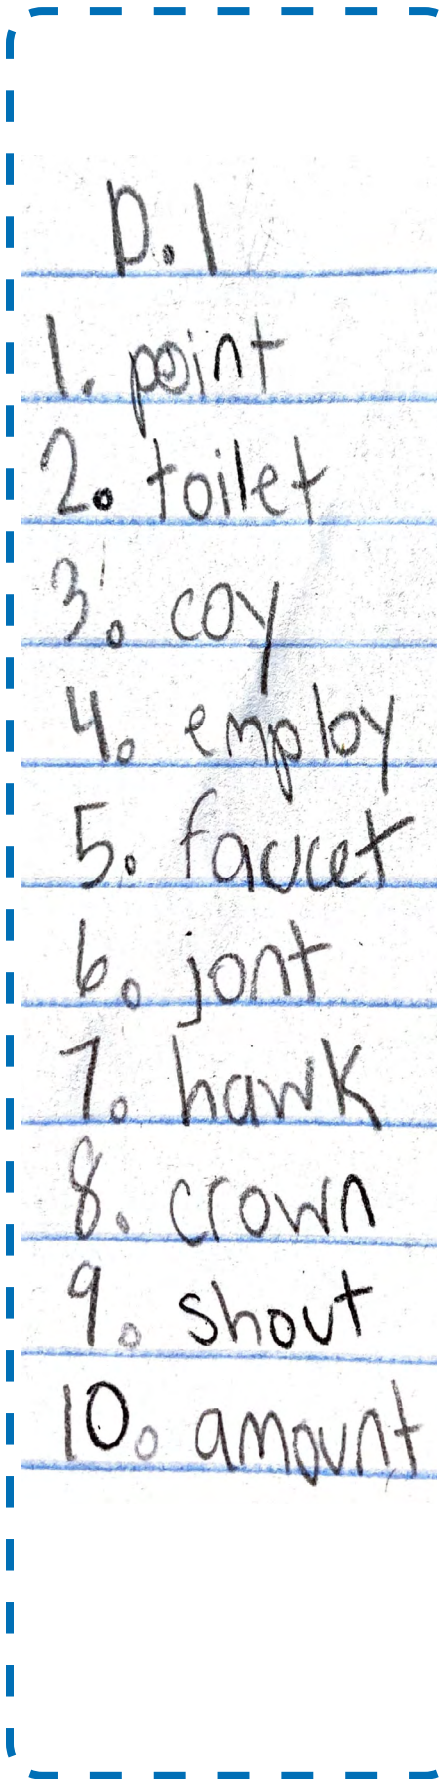 D.1
1. point
2. toilet
3. coy
4. employ
5. faucet
6. jont
7. hawk
8. crown
9. shout
10. amount